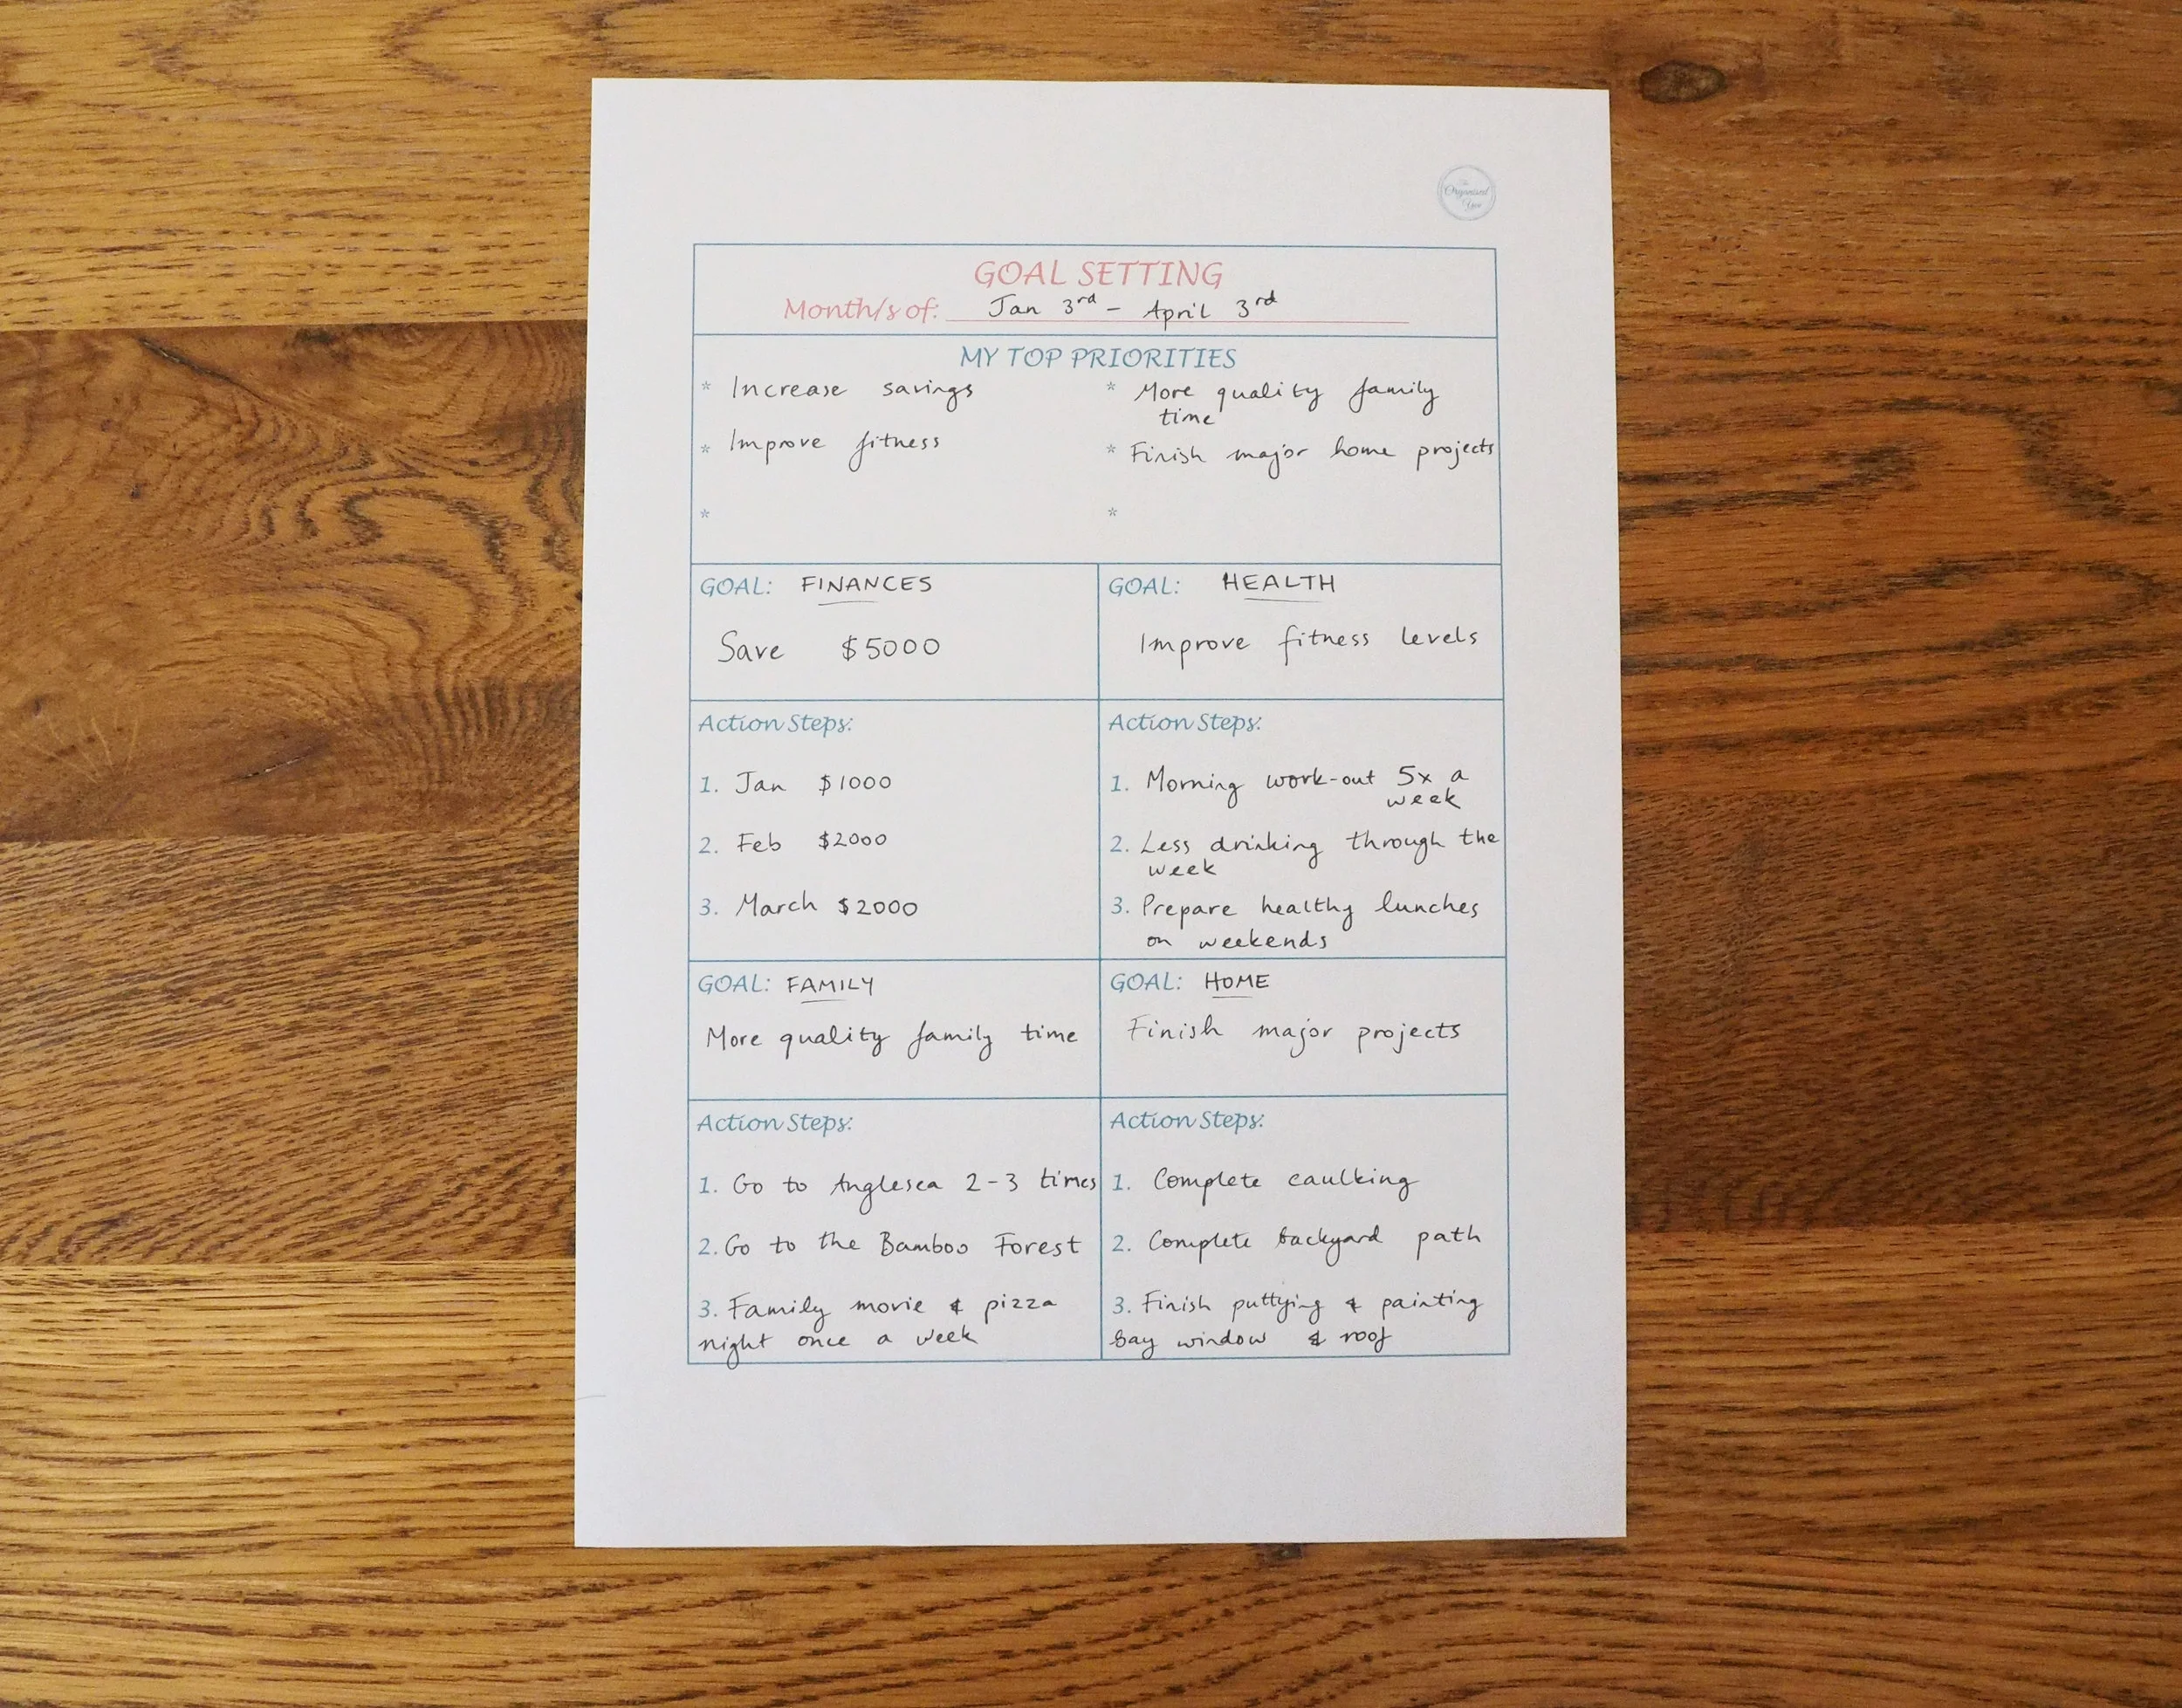 The
Organised
You
GOAL SETTING
Month/s of: Jan 3rd - April 3rd
MY TOP PRIORITIES
* Increase savings
* Improve fitness
*
* More quality family
time
* Finish major home projects
*
GOAL: FINANCES
Save $5000
Action Steps:
1. Jan $1000
2. Feb $2000
3. March $2000
GOAL: HEALTH
Improve fitness levels
Action Steps:
1. Morning work-out 5x a
week
2. Less drinking through the
week
3. Prepare healthy lunches
on weekends
GOAL: FAMILY
More quality family time
Action Steps:
1. Go to Anglesea 2-3 times
2. Go to the Bamboo Forest
3. Family movie & pizza
night once a week
GOAL: HOME
Finish major projects
Action Steps:
1. Complete caulking
2. Complete backyard path
3. Finish puttying & painting
bay window & roof